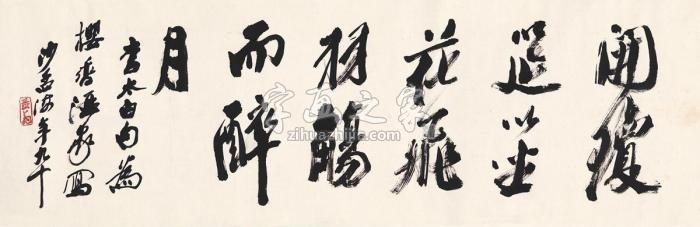 開瓊
筵以坐
花飛
羽觴
而醉
月
李太白句為
櫻香 寫
沙孟海年九十
字画之家
zihuazhijia.com